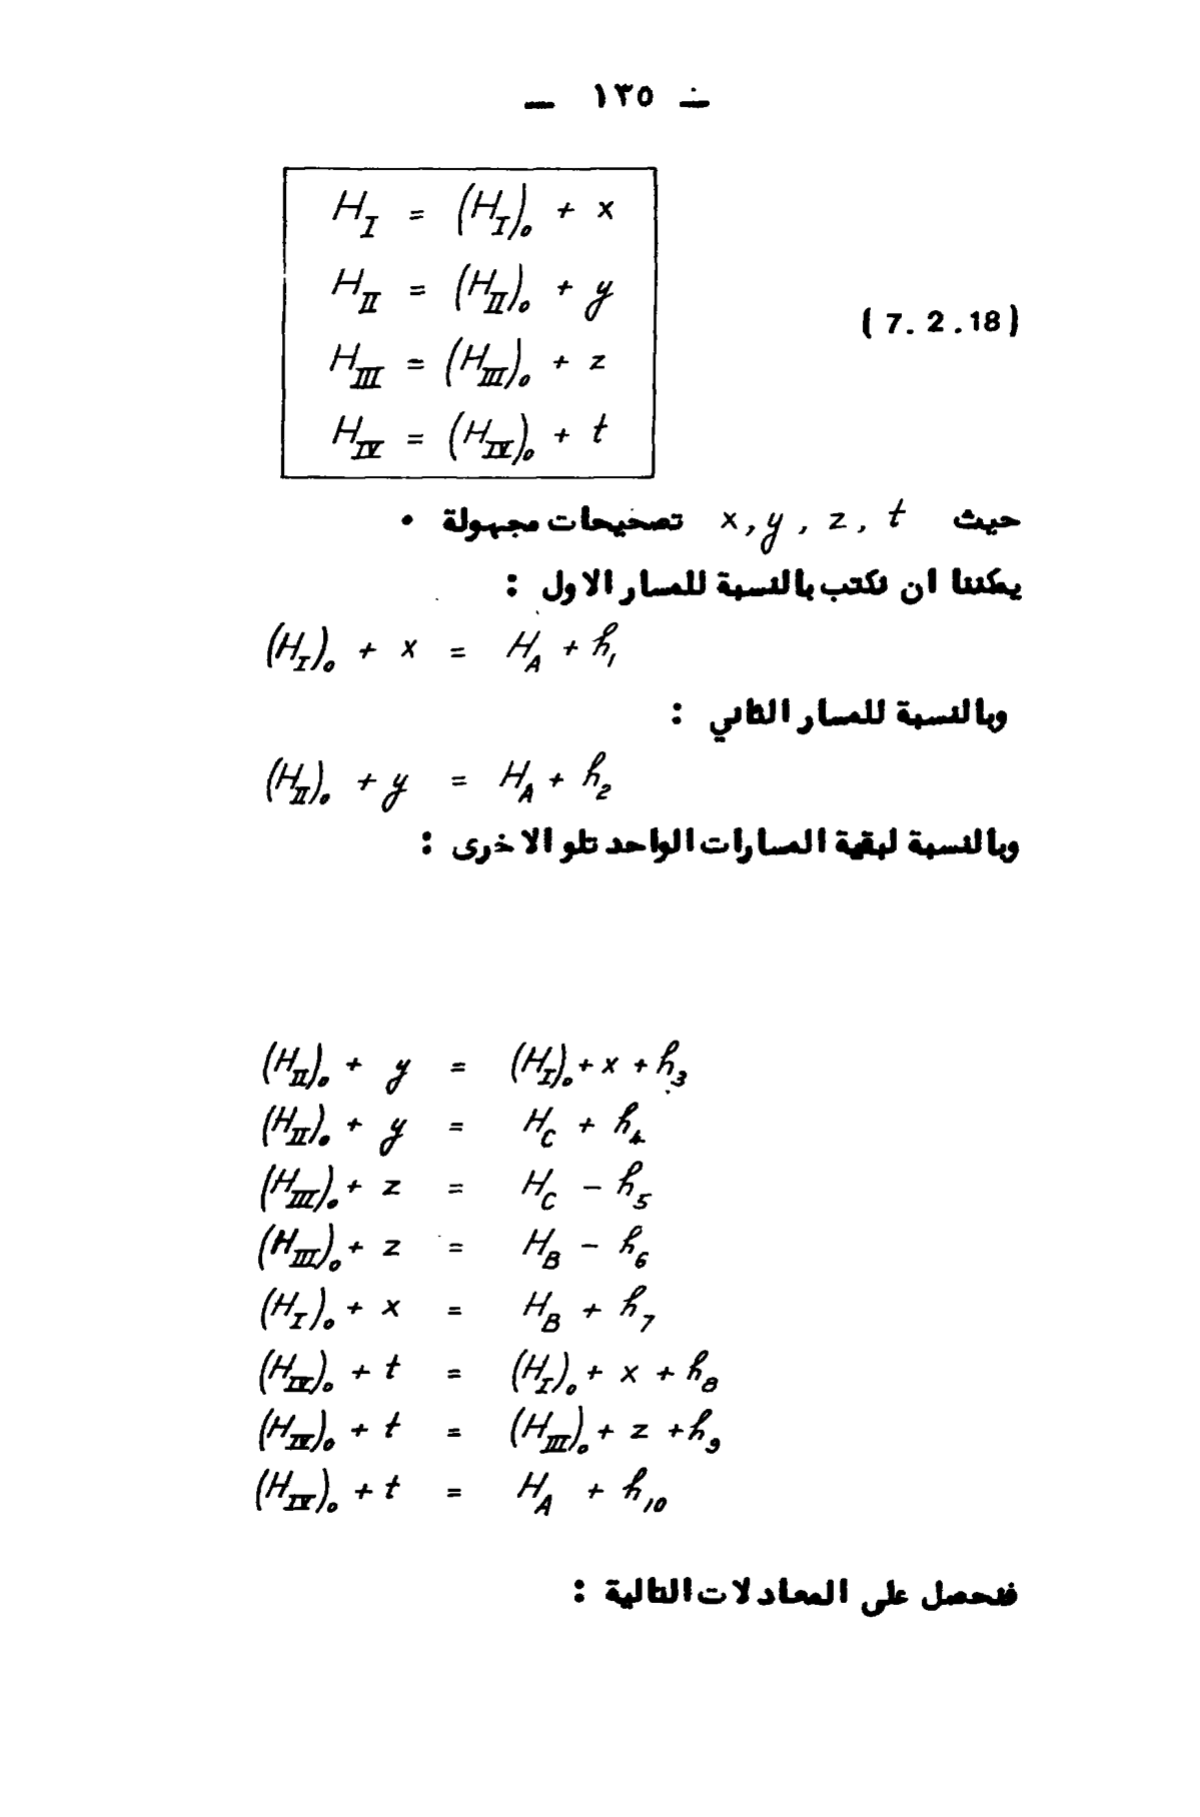 — ١٣٥ —
H_I = (H_I)₀ + x
H_II = (H_II)₀ + y
(7.2.18)
H_III = (H_III)₀ + z
H_IV = (H_IV)₀ + t
حيث x, y, z, t تصحيحات مجهولة •
يمكننا ان نكتب بالنسبة للمسار الاول :
(H_I)₀ + x = H_A + h₁
وبالنسبة للمسار الثاني :
(H_II)₀ + y = H_A + h₂
وبالنسبة لبقية المسارات الواحد تلو الاخرى :
(H_II)₀ + y = (H_I)₀ + x + h₃
(H_II)₀ + y = H_C + h₄
(H_III)₀ + z = H_C − h₅
(H_III)₀ + z = H_B − h₆
(H_I)₀ + x = H_B + h₇
(H_IV)₀ + t = (H_I)₀ + x + h₈
(H_IV)₀ + t = (H_III)₀ + z + h₉
(H_IV)₀ + t = H_A + h₁₀
فنحصل على المعادلات التالية :